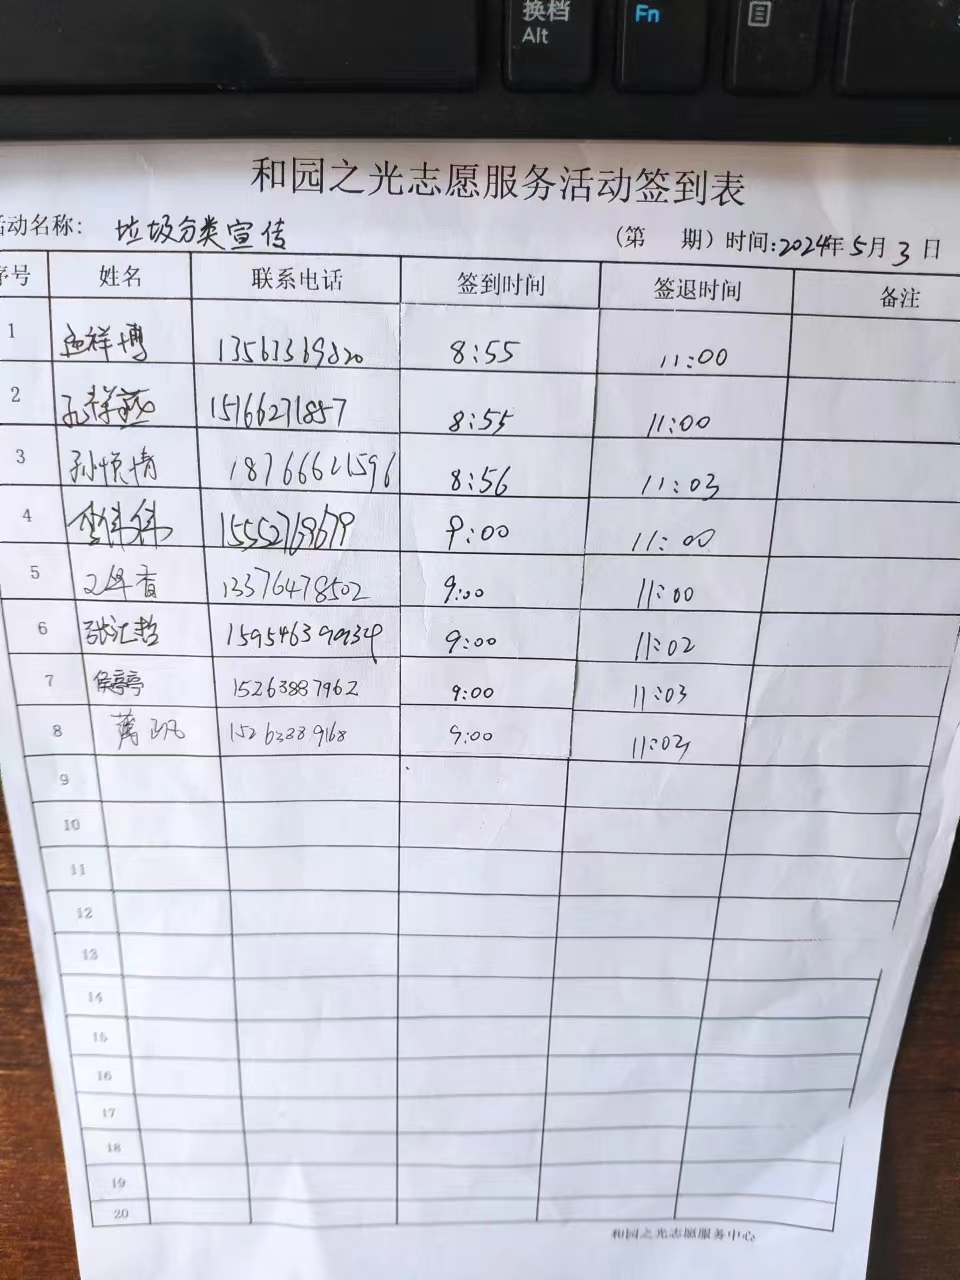 换档
Alt
Fn
和园之光志愿服务活动签到表
活动名称: 垃圾分类宣传 (第 期) 时间:2024年5月3日
序号 姓名 联系电话 签到时间 签退时间 备注
1 祥博 13563369820 8:55 11:00
2 孔祥燕 15166271857 8:55 11:00
3 孙悦情 18766621596 8:56 11:03
4 李伟伟 15552769679 9:00 11:00
5 香 13376478502 9:00 11:00
6 张汇哲 15954639093 9:00 11:02
7 侯亭亭 15263887962 9:00 11:03
8 9:00 11:03
9
10
11
12
13
14
15
16
17
18
19
20
和园之光志愿服务中心